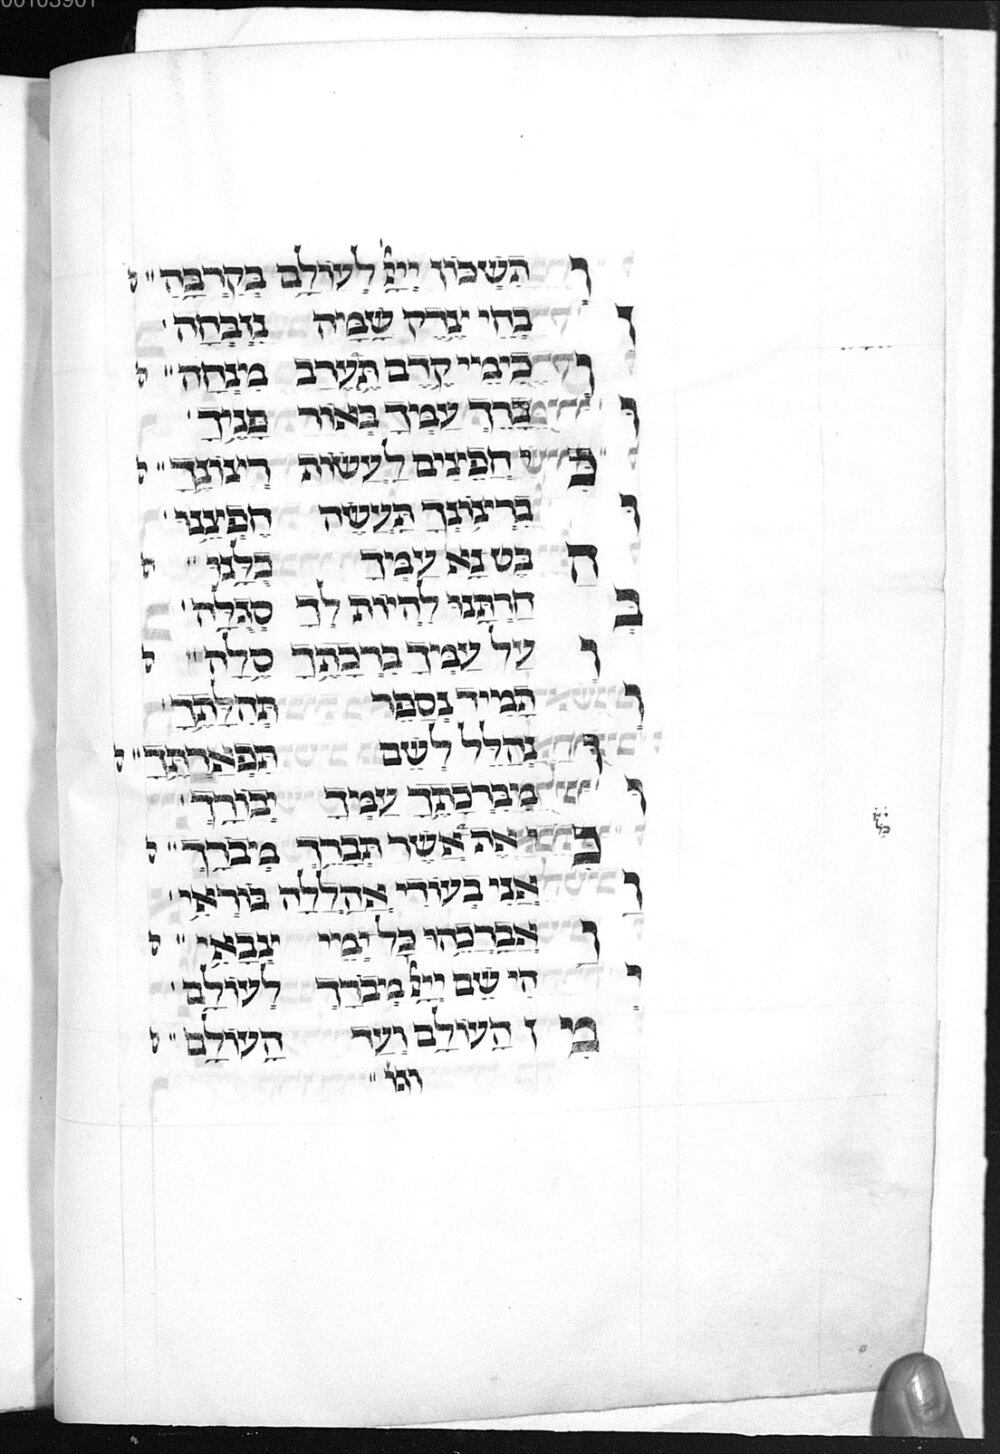 00103901
וְ תִּשְׁכּוֹן יְיָ֗ לְעוֹלָם בְּקִרְבָּהּ ״ ס
ךָ בְּחֵי יִצְדַּק שְׁמֵיהּ בִּזְבָחָהּ ׳
וְ כִימֵי קֶדֶם תֶּעֱרַב מִנְחָה ״ ס
וּ בָרֵךְ עַמְּךָ בְּאוֹר פָּנֶיךָ ׳
כִּי חֲפֵיצִים לַעֲשׂוֹת רְצוֹנֶךָ ״ ס
וּ בִרְצוֹנְךָ תַּעֲשֶׂה חֶפְצֵנוּ ׳
הַ בֵּט נָא עַמְּךָ כֻּלָּנוּ ״ ס
בְּ חַרְתָּנוּ לִהְיוֹת לְךָ סְגֻלָּה ׳
וְ עַל עַמְּךָ בִרְכָתֶךָ סֶּלָה ״ ס
וְ תָמִיד נְסַפֵּר תְּהִלָּתֶךָ ׳
וּ נְהַלֵּל לְשֵׁם תִּפְאַרְתֶּךָ ״ ס
וּ מִבִּרְכָתְךָ עַמְּךָ יְבוֹרָךְ ׳
כִּי אֶת אֲשֶׁר תְּבָרֵךְ מְבֹרָךְ ״ ס
וַ אֲנִי בְּעוֹדִי אֲהַלְלָה בּוֹרְאִי ׳
וַ אֲבָרְכֵהוּ כָּל יְמֵי צְבָאִי ״ ס
יְ הִי שֵׁם יְיָ֗ מְבֹרָךְ לְעוֹלָם ׳
מִ ן הָעוֹלָם וְעַד הָעוֹלָם ״ ס
וגו׳ ״